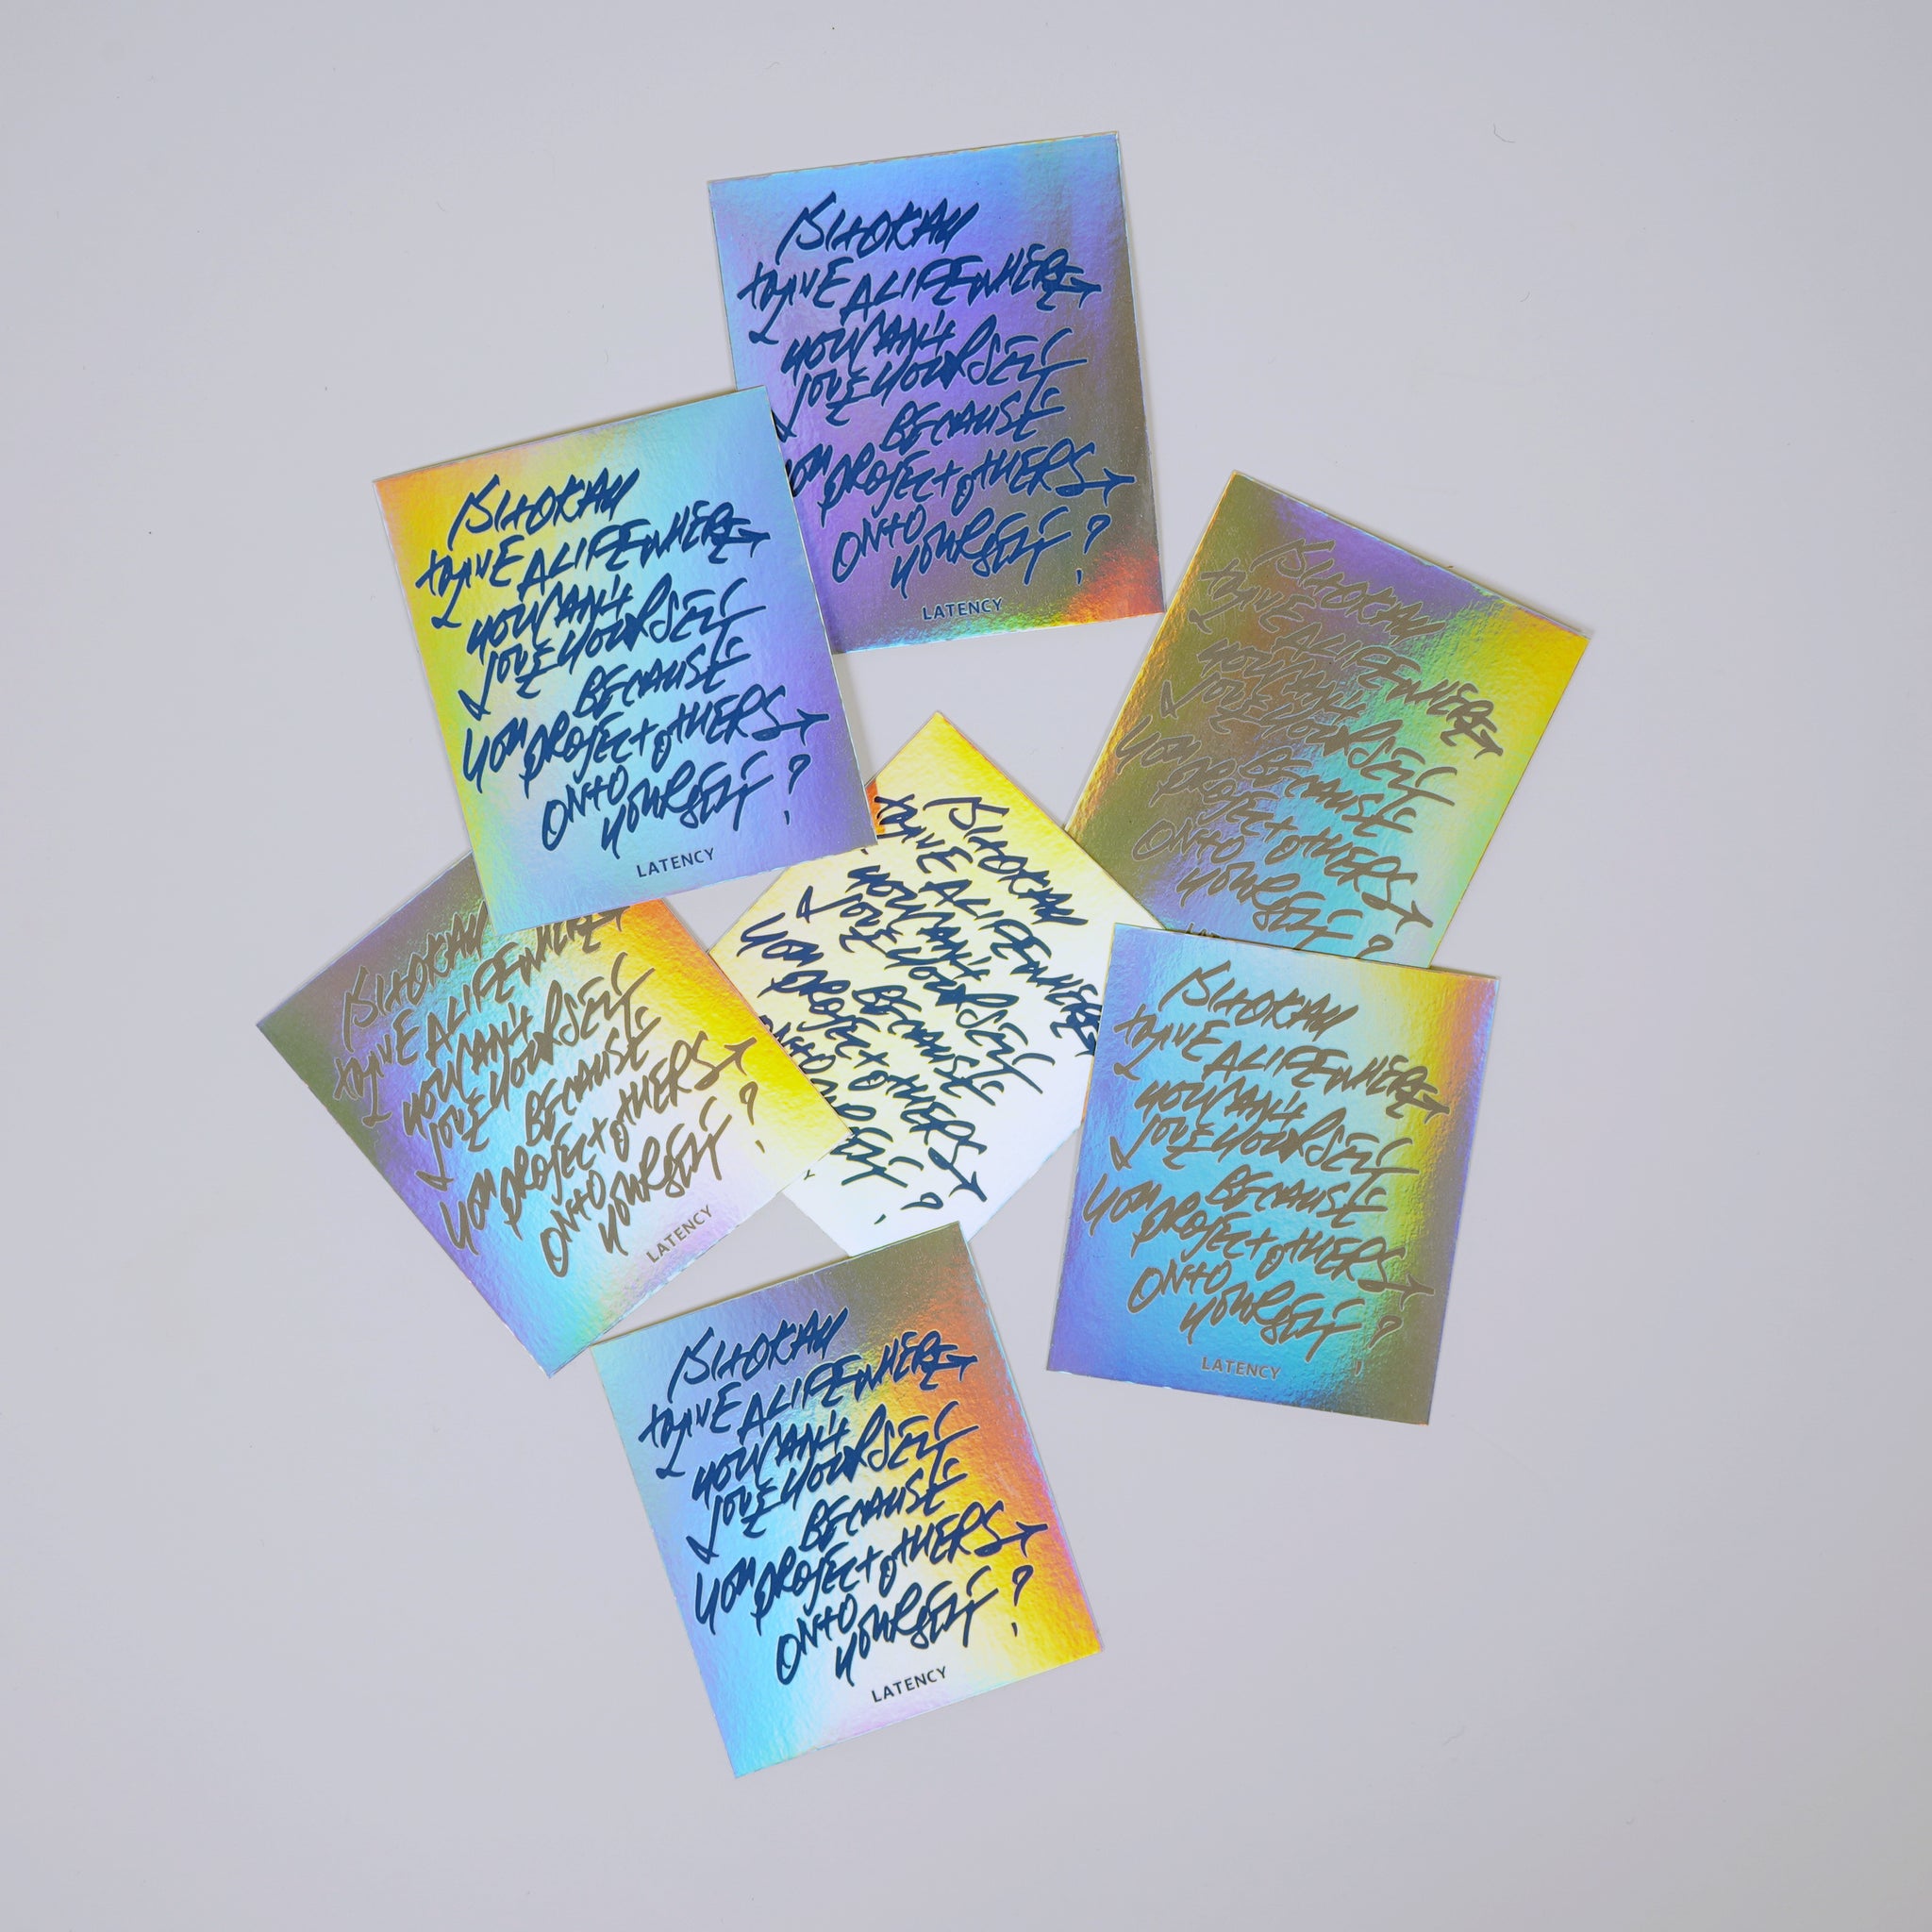 IS IT OKAY
TO LIVE A LIFE WHERE
YOU CAN'T
LOVE YOURSELF
BECAUSE
YOU PROJECT OTHERS
ONTO
YOURSELF?
LATENCY
IS IT OKAY
TO LIVE A LIFE WHERE
YOU CAN'T
LOVE YOURSELF
BECAUSE
YOU PROJECT OTHERS
ONTO
YOURSELF?
LATENCY
IS IT OKAY
TO LIVE A LIFE WHERE
YOU CAN'T
LOVE YOURSELF
BECAUSE
YOU PROJECT OTHERS
ONTO
YOURSELF?
IS IT OKAY
TO LIVE A LIFE WHERE
YOU CAN'T
LOVE YOURSELF
BECAUSE
YOU PROJECT OTHERS
IS IT OKAY
TO LIVE A LIFE WHERE
YOU CAN'T
LOVE YOURSELF
BECAUSE
YOU PROJECT OTHERS
ONTO
YOURSELF?
LATENCY
IS IT OKAY
TO LIVE A LIFE WHERE
YOU CAN'T
LOVE YOURSELF
BECAUSE
YOU PROJECT OTHERS
ONTO
YOURSELF?
LATENCY
IS IT OKAY
TO LIVE A LIFE WHERE
YOU CAN'T
LOVE YOURSELF
BECAUSE
YOU PROJECT OTHERS
ONTO
YOURSELF?
LATENCY